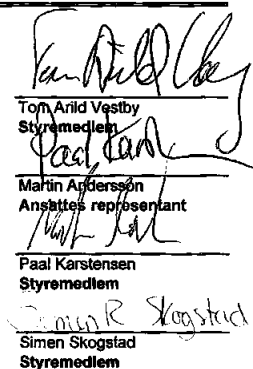 Tom Arild Vestby
Tom Arild Vestby
Styremedlem
Paal Karst
Martin Andersson
Ansattes representant
Paal Karstensen
Styremedlem
Simen R Skogstad
Simen Skogstad
Styremedlem